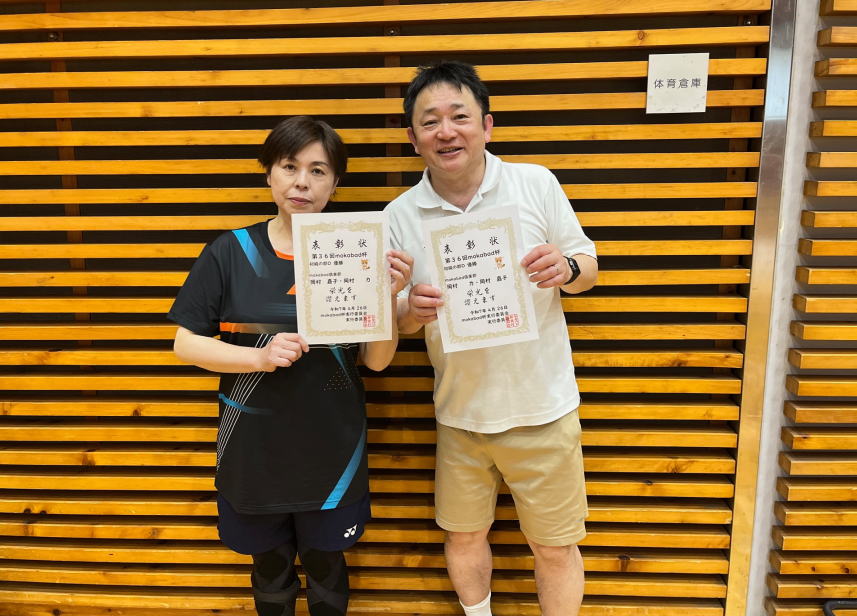 体育倉庫
表彰状
第３６回mokabad杯
初級の部D 優勝
mokabad倶楽部
岡村 昌子・岡村 力
栄光を
讃えます
令和7年 4月 26日
mokabad杯実行委員会
実行委員長
表彰状
第３６回mokabad杯
初級の部D 優勝
mokabad倶楽部
岡村 力・岡村 昌子
栄光を
讃えます
令和7年 4月 26日
mokabad杯実行委員会
実行委員長
YONEX